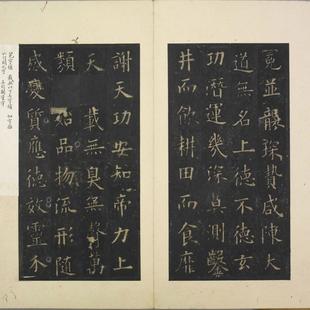 冕並襲琛贄咸陳大
道無名上德不德玄
功潛運幾深莫測鑿
井而飲耕田而食靡
謝天功安知帝力上
天載無臭無聲萬
類始品物流形隨
感變質應德效靈介